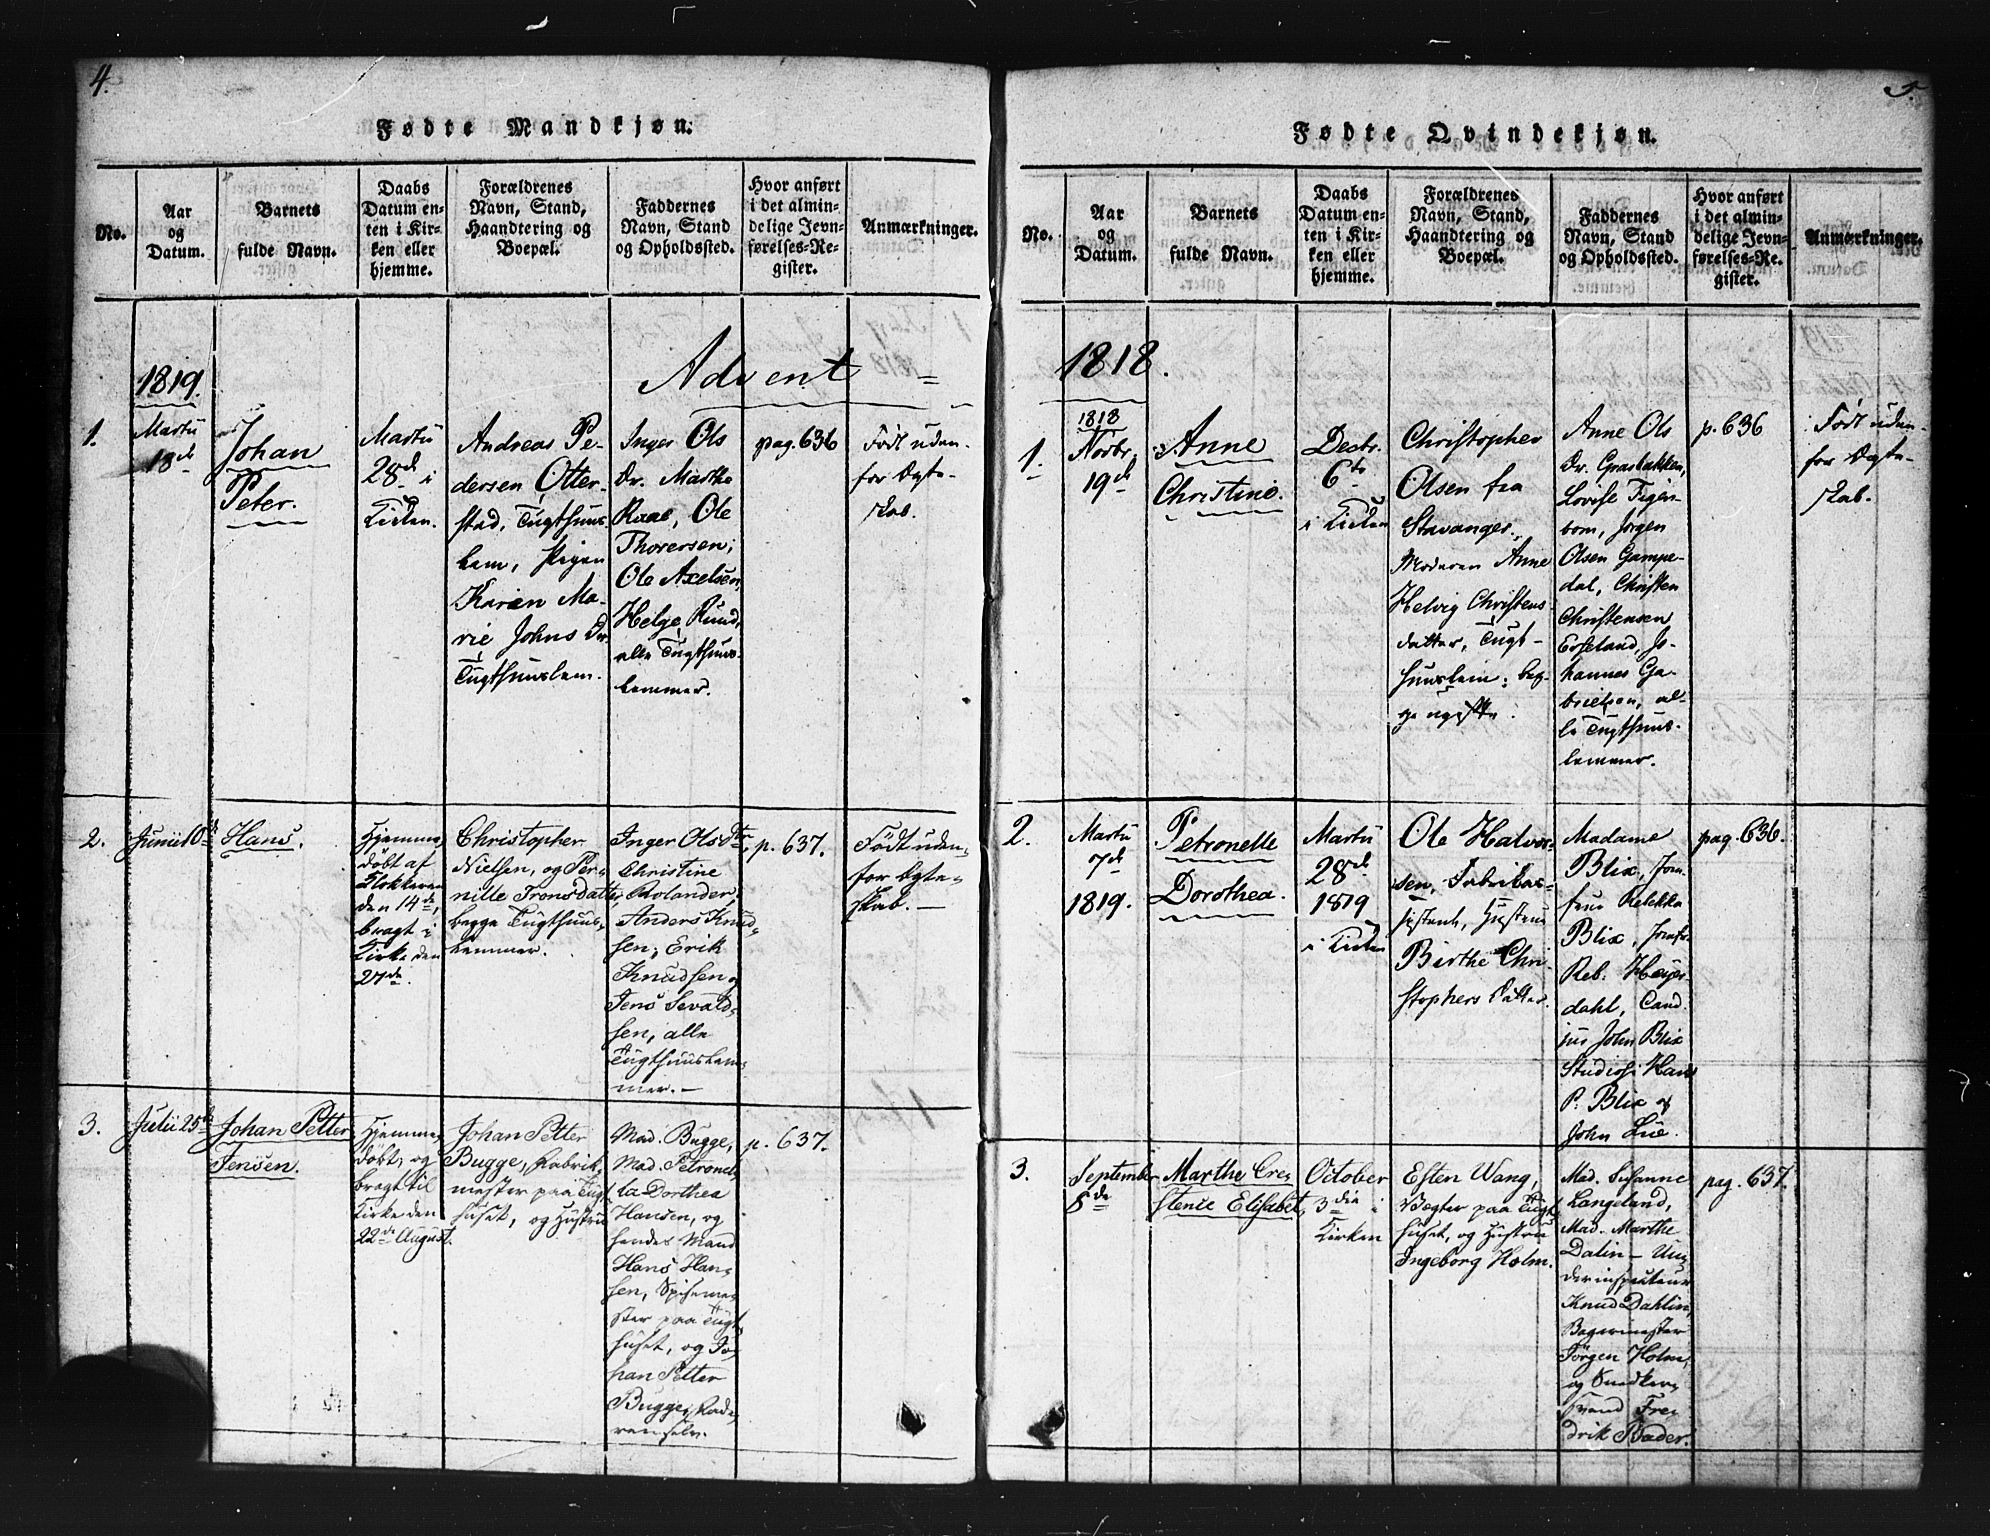 4.
Fødte Mandkjøn.
No.
Aar
og
Datum.
Barnets
fulde Navn.
Daabs
Datum en-
ten i Kir-
ken eller
hjemme.
Forældrenes
Navn, Stand,
Haandtering og
Boepæl.
Faddernes
Navn, Stand
og Opholdssted.
Hvor anført
i det almin-
delige Jevn-
førelses-Re-
gister.
Anmærkninger.
1819.
Advent
1.
Martii
18de
Johan
Peter.
Martii
28de i
Kirken.
Andreas Pe-
dersen Otter-
stad, Tugthuus-
lem, Pigen
Karen Ma-
rie Johns Dr.
Tugthuuslem.
Inger Ols
Dr. Marthe
Raae, Ole
Thorersen,
Ole Axelsen,
Helge Ruud,
alle Tugthuus-
lemmer.
pag. 636
Født uden-
for Ægte-
skab.
2.
Junii 10de
Hans.
Hjemme-
døbt af
Klokkeren
den 14de,
bragt i
Kirke den
27de.
Christopher
Nielsen, og Per-
nille Tronsdatter,
begge Tugthuus-
lemmer.
Inger Olsdtr,
Christine
Bolander,
Anders Knud-
sen, Erik
Knudsen og
Jens Sevald-
sen, alle
Tugthuuslem-
mer.—
p. 637.
Født uden-
for Ægte-
skab.—
3.
Julii 25de
Johan Petter
Jensen.
Hjemme-
døbt, og
bragt til
Kirke den
22de August.
Johan Petter
Bugge, Fabrik-
mester paa Tugt-
huset, og Hustru
Mad. Bugge,
Mad. Petronel-
la Dorthea
Hansen, og
hendes Mand
Hans Han-
sen, Spiseme-
ster paa Tugt-
huset, og Jo-
han Petter
Bugge, Fade-
ren selv.
p. 637.
5.
Fødte Qvindekjøn.
No.
Aar
og
Datum.
Barnets
fulde Navn.
Daabs
Datum en-
ten i Kir-
ken eller
hjemme.
Forældrenes
Navn, Stand,
Haandtering og
Boepæl.
Faddernes
Navn, Stand
og Opholdssted.
Hvor anført
i det almin-
delige Jevn-
førelses-Re-
gister.
Anmærkninger.
1818.
1.
1818
Novbr.
19de
Anne
Christine.
Decbr.
6te
i Kirken
Christopher
Olsen fra
Stavanger.
Moderen Anne
Helvig Christens-
datter, Tugt-
huuslem; beg-
ge ugifte.
Anne Ols
Dr. Grasbakken,
Lovise Tigen-
bom, Jørgen
Olsen Gampe-
dal, Christen
Christensen
Erseland, Jo-
hannes Ga-
brielsen, al-
le Tugthuus-
lemmer.
p. 636
Født uden-
for Ægte-
skab.
2.
Martii
7de
1819.
Petronelle
Dorothea.
Martii
28de
1819
i Kirken
Ole Halvor-
sen, Fabrikas-
sistent, Hustrue
Birthe Chri-
stophers Datter.
Madame
Blix, Jom-
frue Rebekka
Blix, Jomfr.
Reb. Heyer-
dahl, Cand.
jur John Blix
Studiosi Hans
P. Blix og
John Lie.
pag. 636.
3.
September
8de
Marthe Cre-
stence Elisabet,
October
3die i
Kirken
Esten Wang,
Vægter paa Tugt-
huset, og Hustru
Ingeborg Holm.
Mad. Susanne
Langeland,
Mad. Marthe
Dalin — Un-
derinspecteur
Knud Dahlin,
Bagermester
Jörgen Holm,
og Snedker-
svend Fre-
drik Bader.
pag. 637.